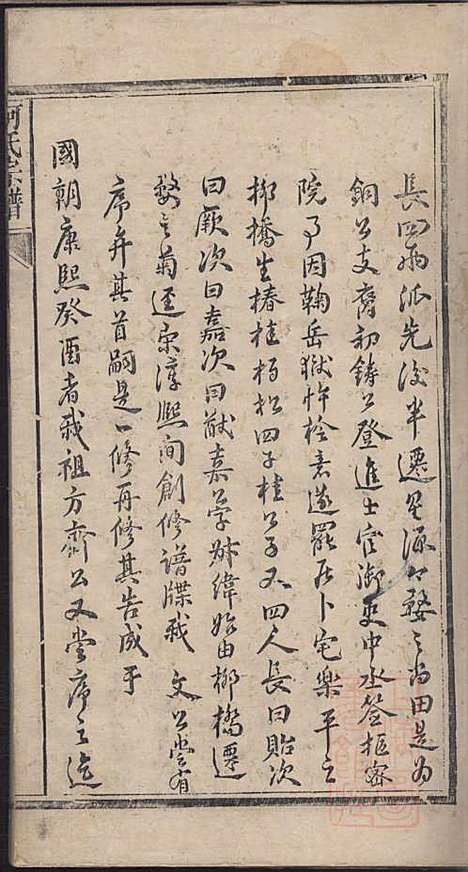 長四兩派先後半遷星源婺之沔田是為
銅公支裔初鑄公登進士官御史中丞簽樞密
院事因鞫岳獄忤檜意遂罷居卜宅樂平之
柳橋生椿桂栢松四子桂公子又四人長曰貽次
曰厥次曰嘉次曰猷嘉公字叔緯始由柳橋遷
婺之菊逕宋淳熙間創修譜牒我 文公嘗有
序弁其首嗣是一修再修其告成于
國朝康熙癸酉者我祖方齋公又嘗序之迄
何氏宗譜